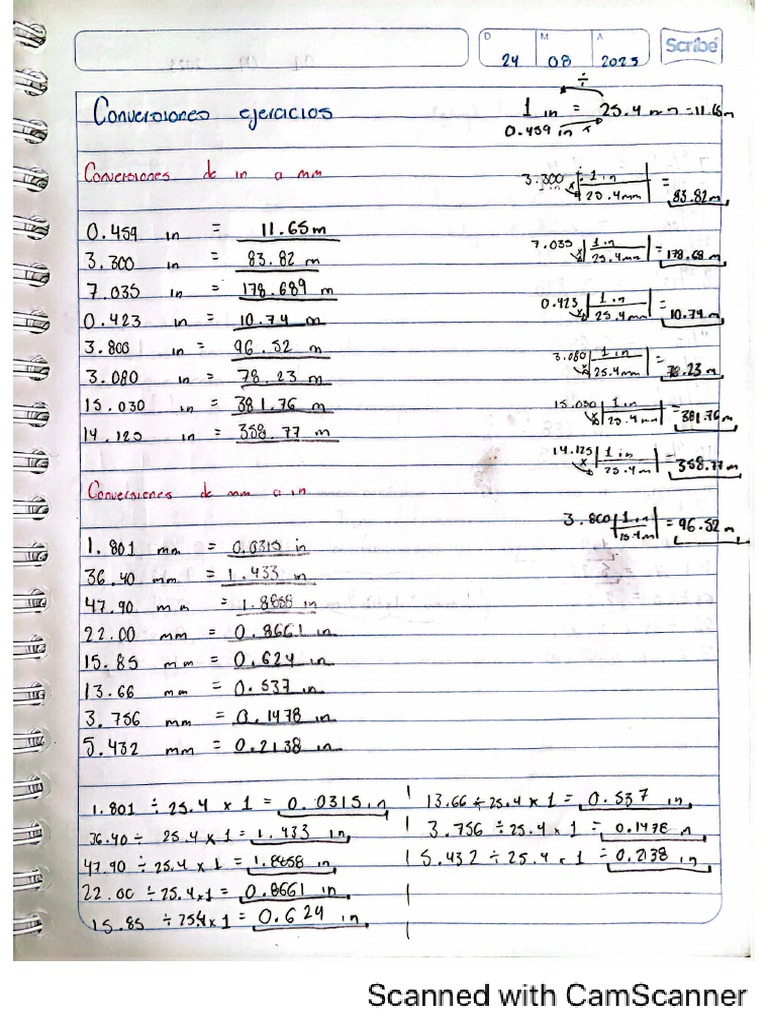 D M A
24 08 2023
Scribe
Conversiones ejercicios
÷
1 in = 25.4 mm = 11.65m
0.459 in x
Conversiones de in a mm
0.459 in = 11.65m
3.300 in = 83.82 m
7.035 in = 178.689 m
0.423 in = 10.74 m
3.800 in = 96.52 m
3.080 in = 78.23 m
15.030 in = 381.76 m
14.125 in = 358.77 m
3.300 1 in = 83.82m
x 25.4mm
7.035 1 in = 178.68 m
x 25.4mm
0.423 1 in = 10.74 m
x 25.4mm
3.080 1 in = 78.23 m
x 25.4mm
15.030 1 in = 381.76 m
x 25.4mm
14.125 1 in = 358.77 m
x 25.4m
3.800 1 in = 96.52 m
25.4m
Conversiones de mm a in
1.801 mm = 0.0315 in
36.40 mm = 1.433 in
47.90 mm = 1.8858 in
22.00 mm = 0.8661 in
15.85 mm = 0.624 in
13.66 mm = 0.537 in
3.756 mm = 0.1478 in
5.432 mm = 0.2138 in
1.801 ÷ 25.4 x 1 = 0.0315 in
36.40 ÷ 25.4 x 1 = 1.433 in
47.90 ÷ 25.4 x 1 = 1.8858 in
22.00 ÷ 25.4 x 1 = 0.8661 in
15.85 ÷ 25.4 x 1 = 0.624 in
13.66 ÷ 25.4 x 1 = 0.537 in
3.756 ÷ 25.4 x 1 = 0.1478 in
5.432 ÷ 25.4 x 1 = 0.2138 in
Scanned with CamScanner